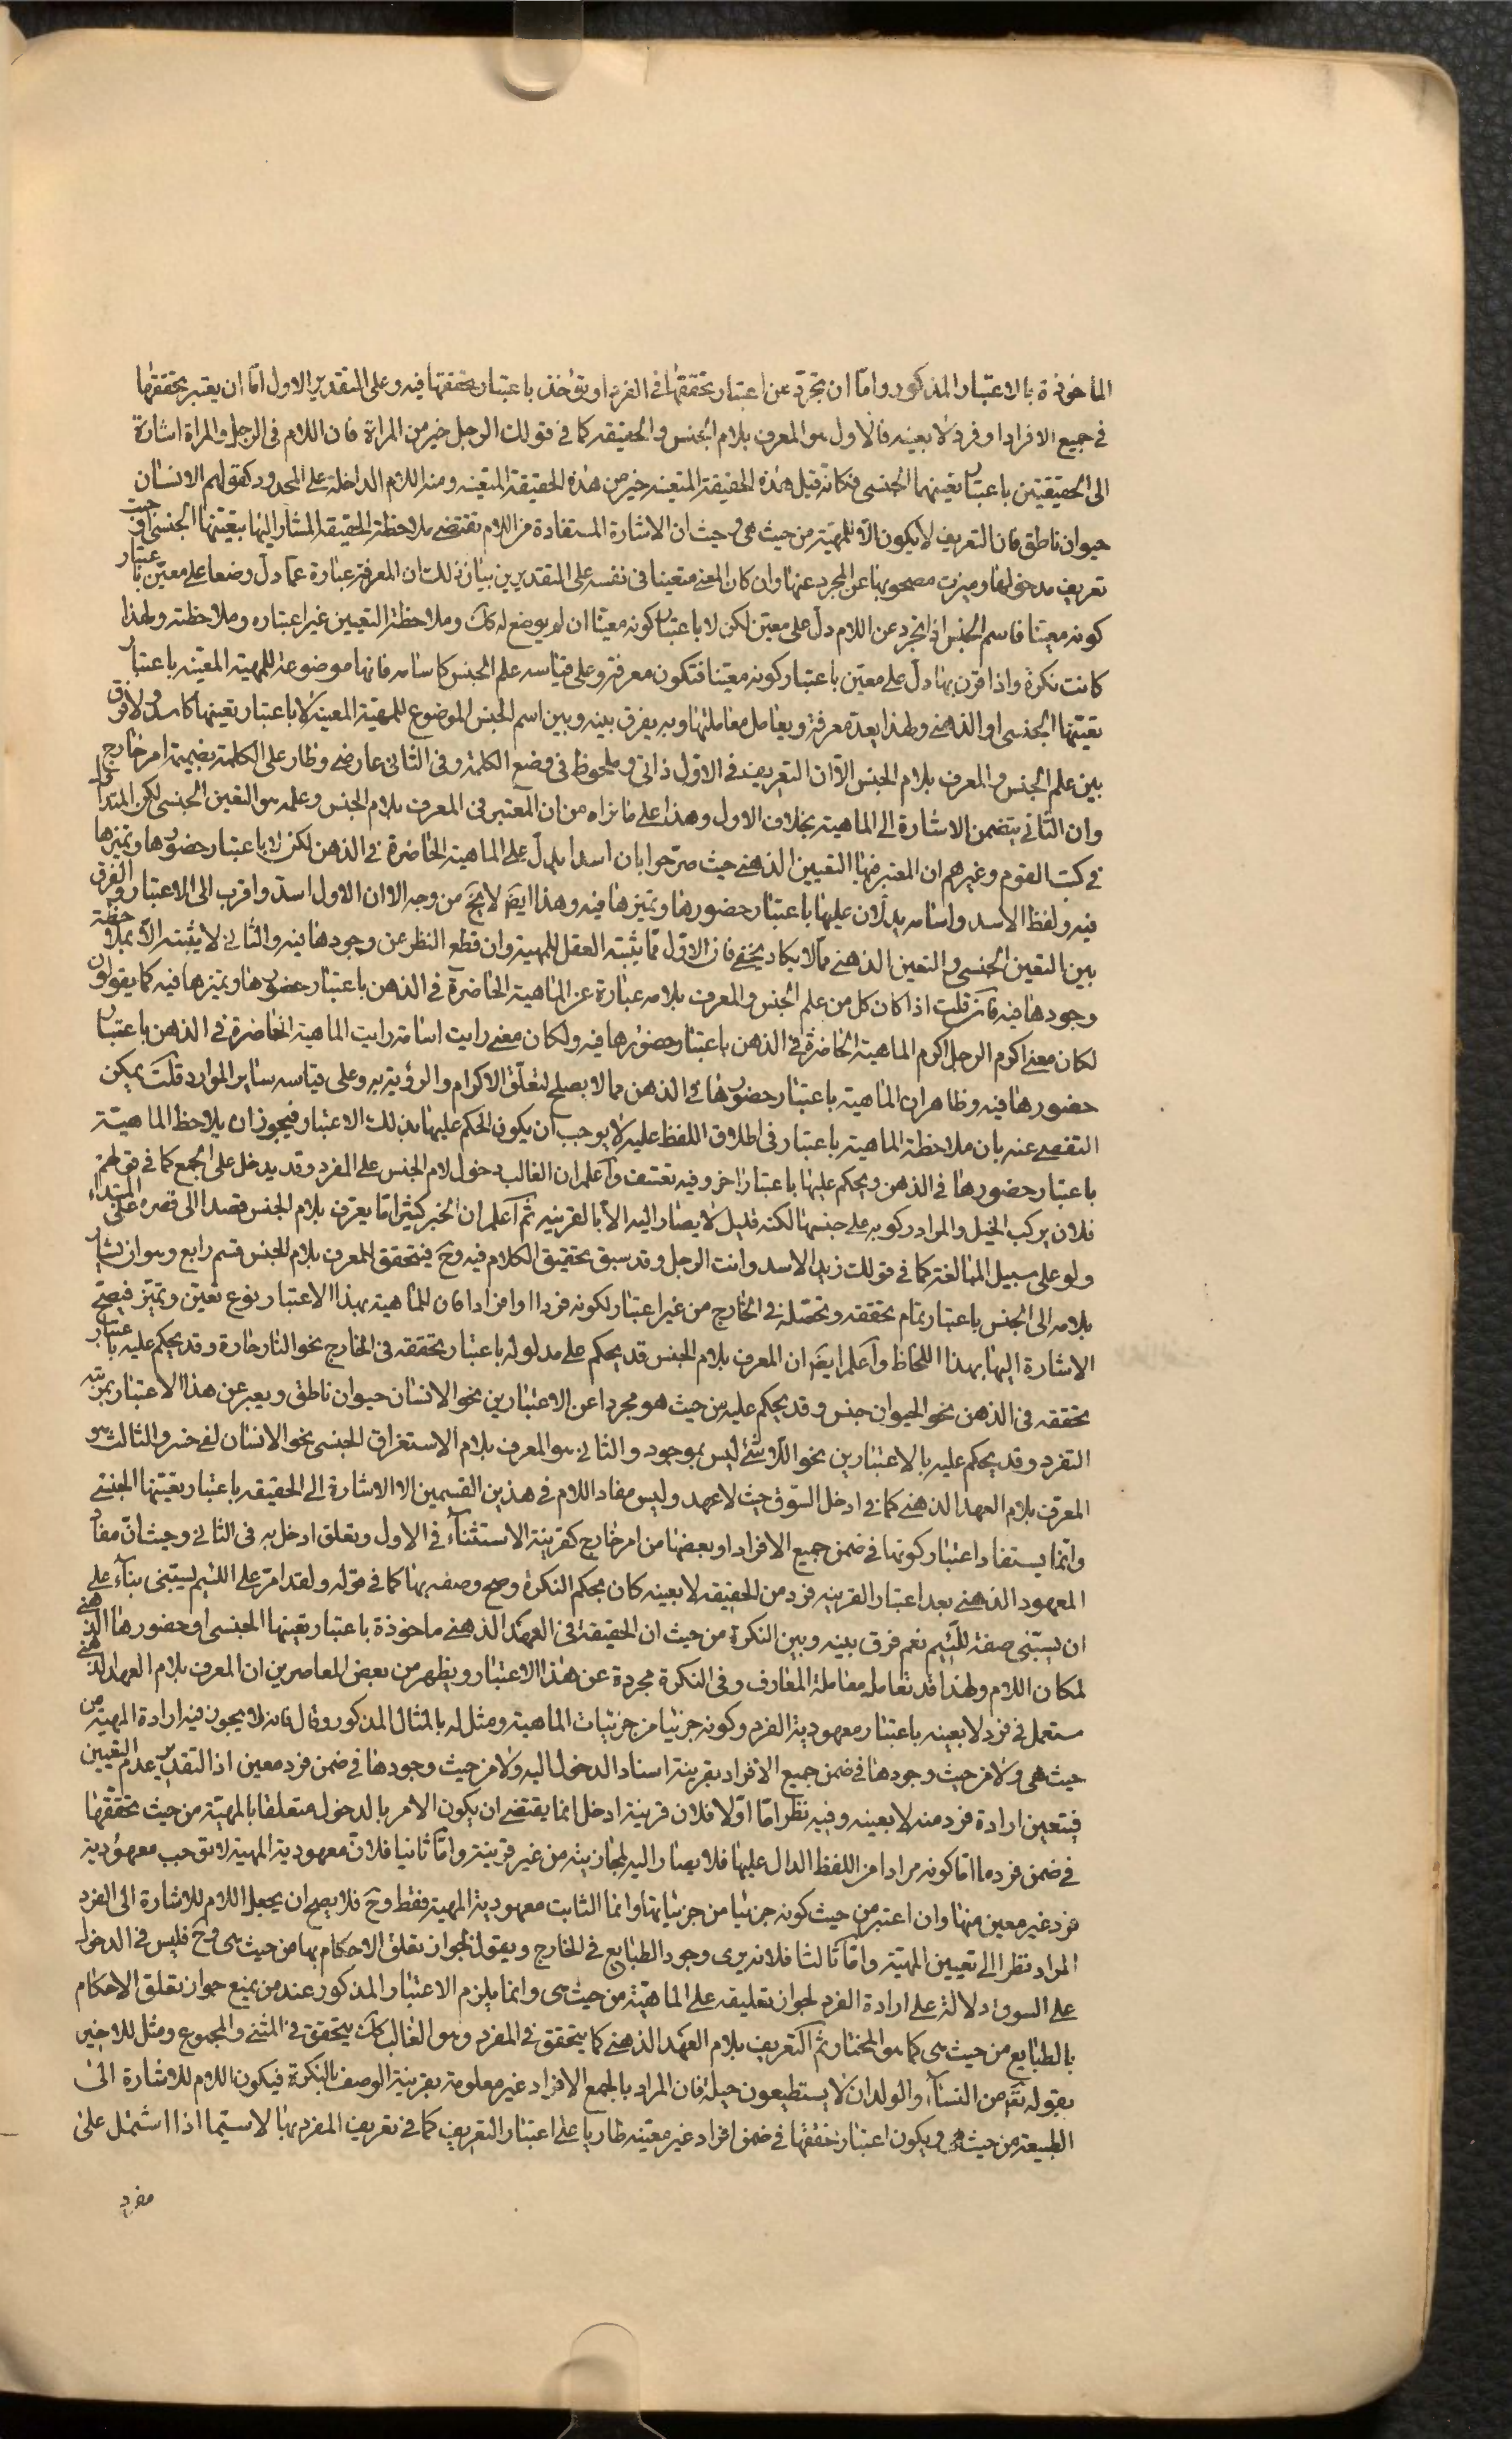 المأخوذة بالاعتبار المذكور واما ان تجرد عن اعتبار تحققها في الفرد او يؤخذ باعتبار تحققها فيه وعلى التقدير الاول اما ان يعتبر تحققها
في جميع الافراد او فرد لا بعينه فالاول هو المعرف بلام الجنس والحقيقه كما في قولك الرجل خير من المراة فان اللام في الرجل والمراة اشارة
الى الحقيقتين باعتبار تعينهما الجنسى فكانه قيل هذه الحقيقة المتعينه خير من هذه الحقيقة المتعينه ومنه اللام الداخلة على المحدود كقولهم الانسان
حيوان ناطق فان التعريف لا يكون الا للمهية من حيث هى وحيث ان الاشارة المستفادة من اللام تقتضى ملاحظة الحقيقه المشار اليها بتعينها الجنسى افيد
تعريف مدخولها وميزت مصحوبها عن المجرد عنها وان كان المعنى متعينا في نفسه على التقديرين بيان ذلك ان المعرفة عبارة عما دل وضعا على معين باعتبار
كونه معينا فاسم الجنس اذا تجرد عن اللام دل على معين لكن لا باعتبار كونه معينا ان لم يوضع له كك وملاحظة التعيين غير اعتباره وملاحظته ولهذا
كانت نكرة واذا قرن بها دل على معين باعتبار كونه معينا فتكون معرفة وعلى قياسه علم الجنس كاسامه فانها موضوعة للمهية المعينه باعتبار
تعينها الجنسى او الذهنى ولهذا يعد معرفة ويعامل معاملتها وبه يفرق بينه وبين اسم الجنس الموضوع للمهية المعينة لا باعتبار تعينها كاسد ولا فرق
بين علم الجنس والمعرف بلام الجنس الا ان التعريف في الاول ذاتى وملحوظ في وضع الكلمة وفى الثانى عارضى وطار على الكلمة بضميمة امر خارج
وان الثانى يتضمن الاشارة الى الماهية بخلاف الاول وهذا على ما نراه من ان المعتبر في المعرف بلام الجنس وعلمه هو التعين الجنسى لكن المتداول
في كتب القوم وغيرهم ان المعتبر فيها التعيين الذهنى حيث صرحوا بان اسدا يدل على الماهية الحاضرة في الذهن لكن لا باعتبار حضورها وتميزها
فيه ولفظ الاسد واسامه يدلان عليها باعتبار حضورها وتميزها فيه وهذا ايضا لا يخ من وجه الا ان الاول اسد واقرب الى الاعتبار والفرق
بين التعين الجنسى والتعين الذهنى مما لا يكاد يخفى فان الاول مما يثبته العقل للمهية وان قطع النظر عن وجودها فيه والثانى لا يثبته الا بملاحظة
وجودها فيه فان قلت اذا كان كل من علم الجنس والمعرف بلامه عبارة عن الماهية الحاضرة في الذهن باعتبار حضورها وتميزها فيه كما يقولون
لكان معنى اكرم الرجل اكرم الماهية الحاضرة في الذهن باعتبار حضورها فيه ولكان معنى رايت اسامة رايت الماهية الحاضرة في الذهن باعتبار
حضورها فيه وظاهر ان الماهية باعتبار حضورها في الذهن مما لا يصلح لتعلق الاكرام والرؤية به وعلى قياسه ساير الموارد قلت يمكن
التفصى عنه بان ملاحظة الماهية باعتبار في اطلاق اللفظ عليه لا يوجب ان يكون الحكم عليها بذلك الاعتبار فيجوز ان يلاحظ الماهية
باعتبار حضورها في الذهن ويحكم عليها باعتبار اخر وفيه تعسف واعلم ان الغالب دخول لام الجنس على المفرد وقد يدخل على الجمع كما في قولهم
فلان يركب الخيل والمراد ركوبه على جنسها لكنه قليل لا يصار اليه الا بالقرينه ثم اعلم ان الخبر كثيرا ما يعرف بلام الجنس قصدا الى قصره على المبتداء
ولو على سبيل المبالغة كما في قولك زيد الاسد وانت الرجل وقد سبق تحقيق الكلام فيه وح فيتحقق للمعرف بلام الجنس قسم رابع وهو ان يشار
بلامه الى الجنس باعتبار تمام تحققه وتحصله في الخارج من غير اعتبار لكونه فردا او افرادا فان للماهية بهذا الاعتبار نوع تعين وتميز فيصح
الاشارة اليها بهذا اللحاظ واعلم ايضا ان المعرف بلام الجنس قد يحكم على مدلوله باعتبار تحققه في الخارج نحو النار حارة وقد يحكم عليه باعتبار
تحققه في الذهن نحو الحيوان جنس وقد يحكم عليه من حيث هو مجردا عن الاعتبارين نحو الانسان حيوان ناطق ويعبر عن هذا الاعتبار بمرتبه
التقرر وقد يحكم عليه بالاعتبارين نحو اللاشئ ليس بموجود والثانى هو المعرف بلام الاستغراق الجنسى نحو الانسان لفى خسر والثالث هو
المعرف بلام العهد الذهنى كما في ادخل السوق حيث لا عهد وليس مفاد اللام في هذين القسمين الا الاشارة الى الحقيقه باعتبار تعينها الجنسى
وانما يستفاد اعتبار كونها في ضمن جميع الافراد او بعضها من امر خارج كقرينة الاستثناء في الاول وتعلق ادخل به في الثانى وحيث ان مفاد
المعهود الذهنى بعد اعتبار القرينه فرد من الحقيقه لا بعينه كان بحكم النكرة وصح وصفه بها كما في قوله ولقد امر على اللئيم يسبنى بناء على
ان يسبنى صفة للئيم نعم فرق بينه وبين النكرة من حيث ان الحقيقة في العهد الذهنى ماخوذة باعتبار تعينها الجنسى او حضورها الذهنى
لمكان اللام ولهذا قد تعامل معاملة المعارف وفى النكرة مجردة عن هذا الاعتبار ويظهر من بعض المعاصرين ان المعرف بلام العهد الذهنى
مستعمل في فرد لا بعينه باعتبار معهودية الفرد وكونه جزئيا من جزئيات الماهية ومثل له بالمثال المذكور وقال فانه لا يجوز فيه ارادة المهية من
حيث هى ولا من حيث وجودها في ضمن جميع الافراد بقرينة اسناد الدخول اليه ولا من حيث وجودها في ضمن فرد معين اذ التقدير عدم التعيين
فيتعين ارادة فرد منه لا بعينه وفيه نظر اما اولا فلان قرينة ادخل انما يقتضى ان يكون الامر بالدخول متعلقا بالمهية من حيث تحققها
في ضمن فرد ما اما كونه مرادا من اللفظ الدال عليها فلا يصار اليه لمجازيته من غير قرينة واما ثانيا فلان معهودية المهية لا توجب معهودية
فرد غير معين منها وان اعتبر من حيث كونه جزئيا من جزئياتها وانما الثابت معهودية المهية فقط وح فلا يصح ان يجعل اللام للاشارة الى الفرد
المراد نظرا الى تعيين المهية واما ثالثا فلانه يرى وجود الطبايع في الخارج ويقول بجواز تعلق الاحكام بها من حيث هى وح فليس في الدخول
على السوق دلالة على ارادة الفرد لجواز تعليقه على الماهية من حيث هى وانما يلزم الاعتبار المذكور عند من يمنع جواز تعلق الاحكام
بالطبايع من حيث هى كما هو المختار ثم التعريف بلام العهد الذهنى كما يتحقق في المفرد وهو الغالب كك يتحقق في المثنى والمجموع ومثل للاخير
بقوله تعم من النساء والولدان لا يستطيعون حيلة فان المراد بالجمع الافراد غير معلومة بقرينة الوصف بالنكرة فيكون اللام للاشارة الى
الطبيعة من حيث هى ويكون اعتبار تحققها في ضمن افراد غير معينه طاريا على اعتبار التعريف كما في تعريف المفرد بها لا سيما اذا اشتمل على
مفرد